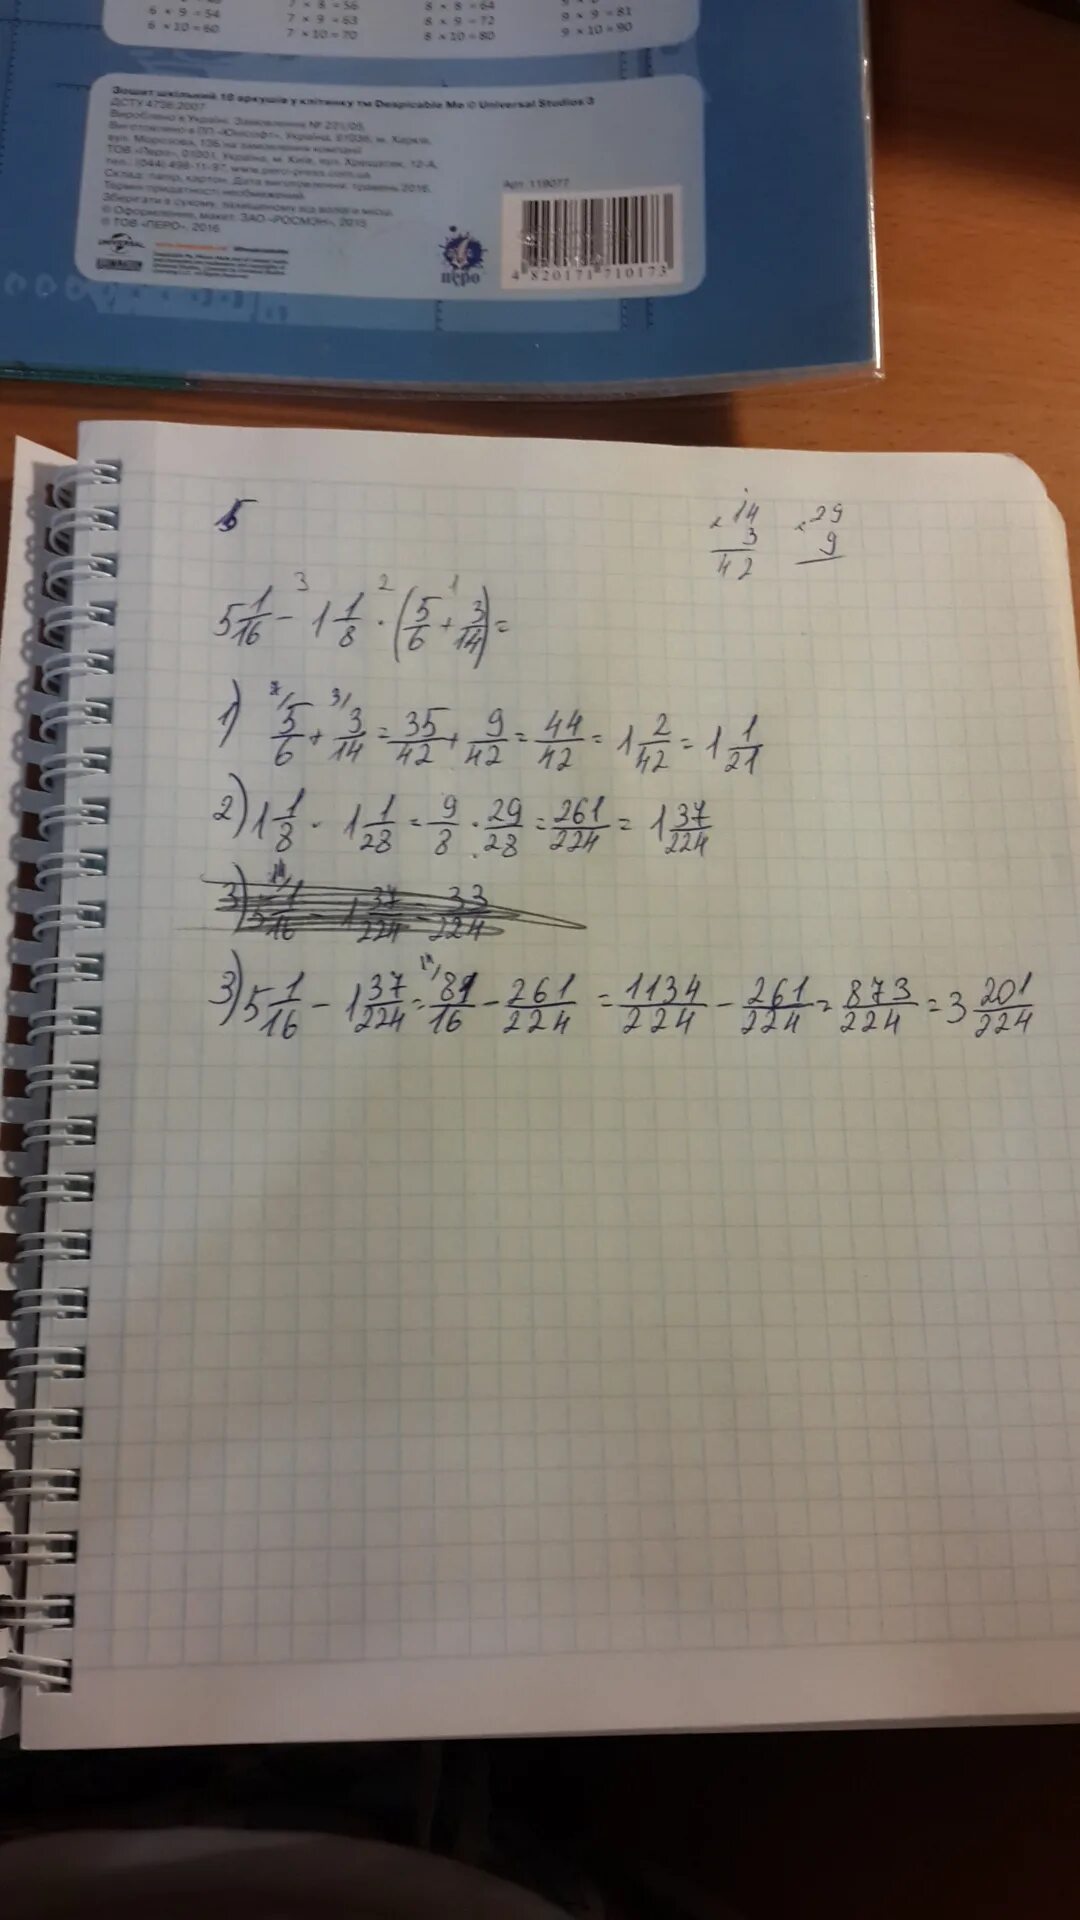 6 × 9 = 54 7 × 8 = 56 8 × 8 = 64 9 × 9 = 81
6 × 10 = 60 7 × 9 = 63 8 × 9 = 72 9 × 10 = 90
7 × 10 = 70 8 × 10 = 80
Зошит шкільний 18 аркушів у клітинку тм Despicable Me © Universal Studios
ДСТУ 4736:2007
Вироблено в Україні. Замовлення №
Виготовлено в ПП «Юнісофт», Україна, 61036, м. Харків,
вул. Морозова, 13б на замовлення компанії
ТОВ «Перо», 01001, Україна, м. Київ, вул. Хрещатик, 12-А,
тел.: (044) 498-11-97, www.pero-press.com.ua
Склад: папір, картон. Дата виготовлення: травень 2016.
Термін придатності необмежений.
Зберігати в сухому, захищеному від вологи місці.
© Оформлення, макет. ЗАО «РОСМЭН», 2015
© ТОВ «ПЕРО», 2016
Арт. 119077
UNIVERSAL
перо
4 820171 710173
5
× 14 × 29
3 9
42
3 2 1
5 1/16 − 1 1/8 · (5/6 + 3/14) =
1) 7/ 5/6 + 3/ 3/14 = 35/42 + 9/42 = 44/42 = 1 2/42 = 1 1/21
2) 1 1/8 · 1 1/28 = 9/8 · 29/28 = 261/224 = 1 37/224
3) 5 1/16 − 1 37/224 = 33/224
3) 5 1/16 − 1 37/224 = 14/ 81/16 − 261/224 = 1134/224 − 261/224 = 873/224 = 3 201/224